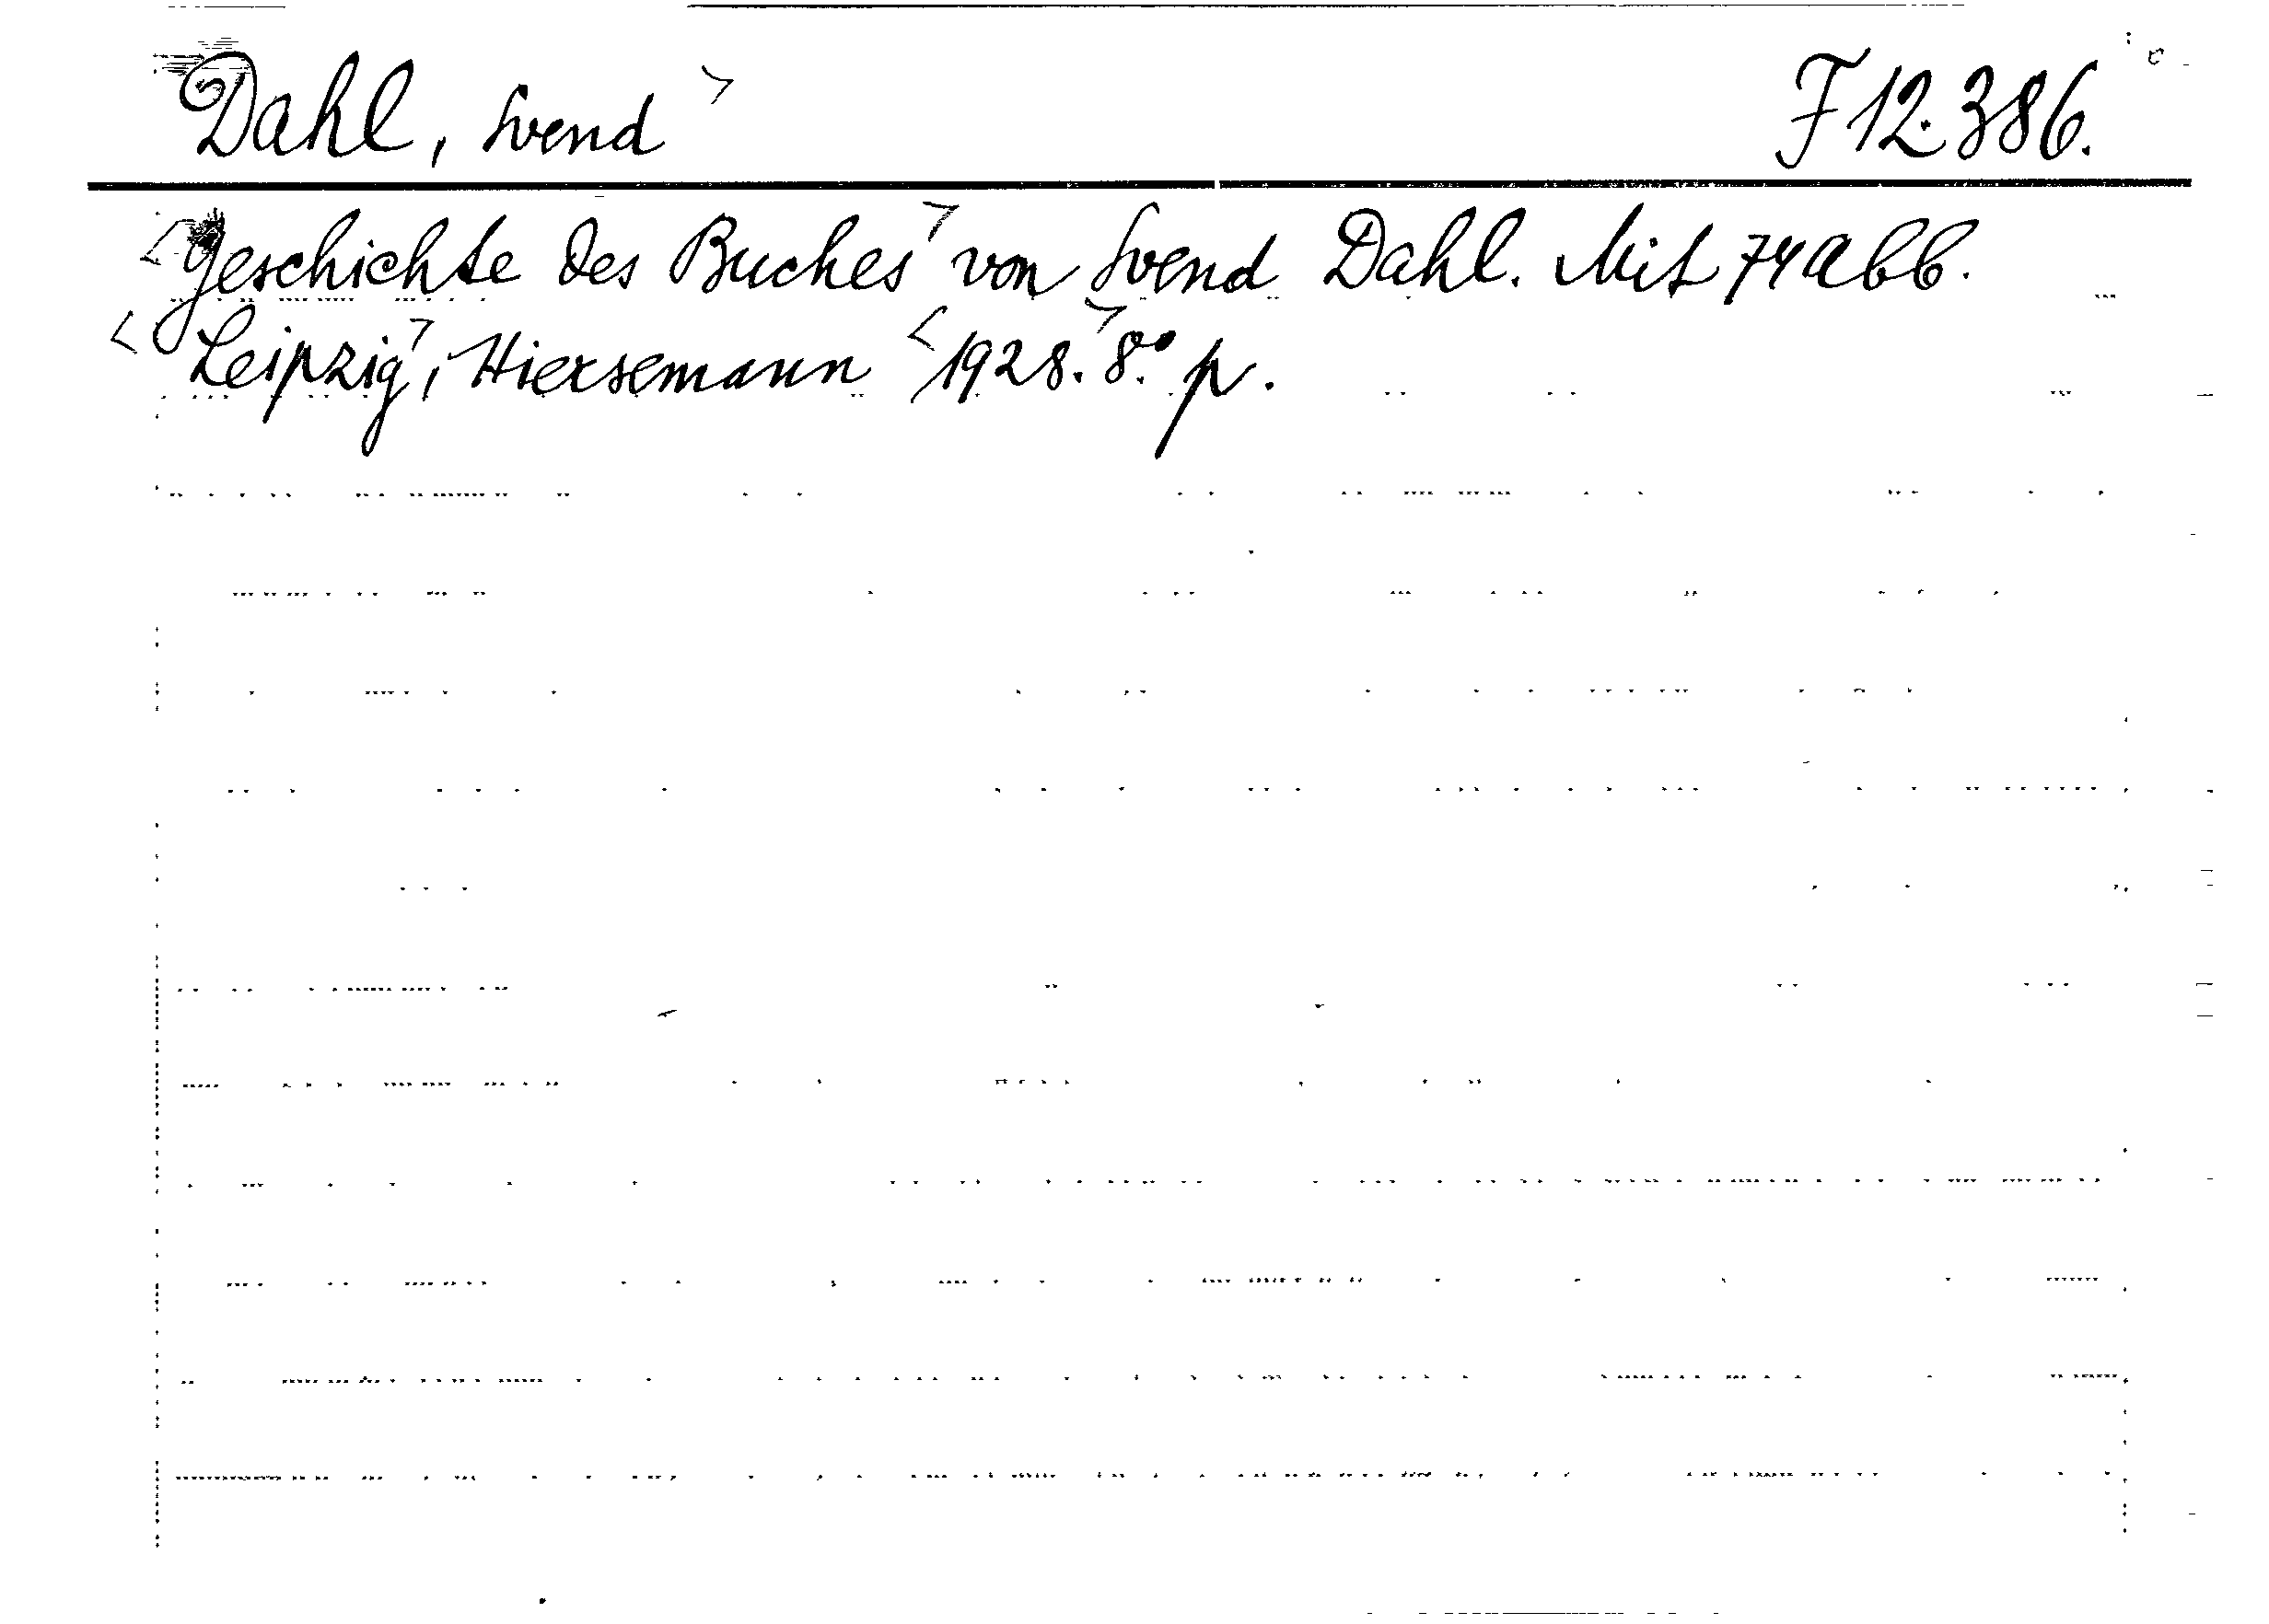 Dahl, Svend > F 12.386.
<Geschichte des Buches> von Svend Dahl. Mit 74 Abb.
<Leipzig>, Hiersemann <1928.> 8.° p.